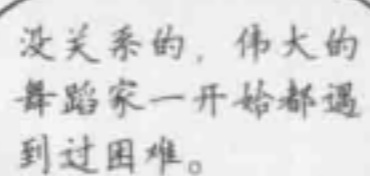 没关系的，伟大的
舞蹈家一开始都遇
到过困难。